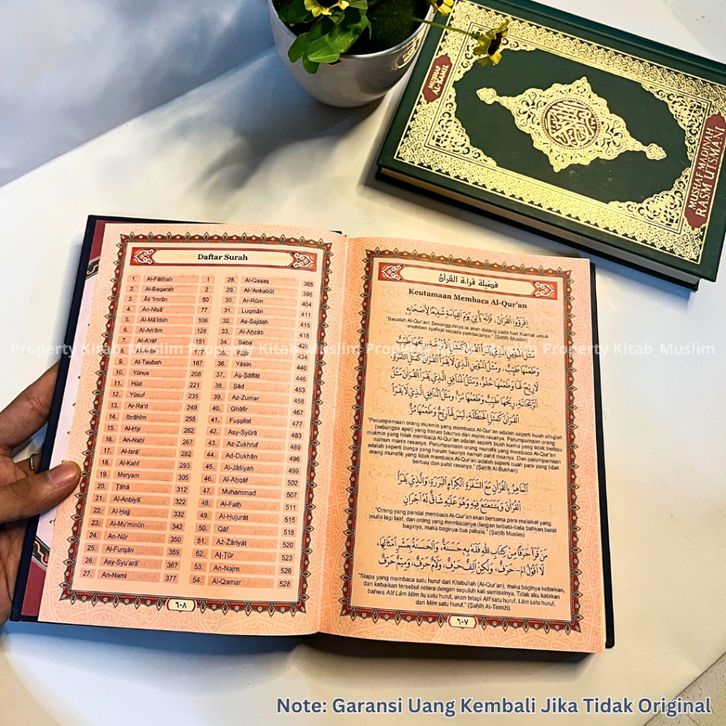 MUSHAF
AL-KAMIL
MUSHAF MADINAH
RASM UTSMANI
Daftar Surah
1. Al-Fātiḥah 1
2. Al-Baqarah 2
3. Āli 'Imrān 50
4. An-Nisā' 77
5. Al-Mā'idah 106
6. Al-An'ām 128
7. Al-A'rāf 151
9. At-Taubah 187
10. Yūnus 208
11. Hūd 221
12. Yūsuf 235
13. Ar-Ra'd 249
14. Ibrāhīm 255
15. Al-Ḥijr 262
16. An-Naḥl 267
17. Al-Isrā' 282
18. Al-Kahf 293
19. Maryam 305
20. Ṭāhā 312
21. Al-Anbiyā' 322
22. Al-Ḥajj 332
23. Al-Mu'minūn 342
24. An-Nūr 350
25. Al-Furqān 359
26. Asy-Syu'arā' 367
27. An-Naml 377
28. Al-Qaṣaṣ 385
29. Al-'Ankabūt 396
30. Ar-Rūm 404
31. Luqmān 411
32. As-Sajdah 415
33. Al-Aḥzāb
34. Saba'
36. Yāsīn
37. Aṣ-Ṣāffāt 446
38. Ṣād 453
39. Az-Zumar 458
40. Ghāfir 467
41. Fuṣṣilat 477
42. Asy-Syūrā 483
43. Az-Zukhruf 489
44. Ad-Dukhān 496
45. Al-Jāṡiyah 499
46. Al-Aḥqāf 502
47. Muḥammad 507
48. Al-Fatḥ 511
49. Al-Ḥujurāt 515
50. Qāf 518
51. Aż-Żāriyāt 520
52. Aṭ-Ṭūr 523
53. An-Najm 526
54. Al-Qamar 528
٦٠٨
فضيلة قراءة القرآن
Keutamaan Membaca Al-Qur'an
اِقْرَؤُوا الْقُرْآنَ، فَإِنَّهُ يَأْتِيْ يَوْمَ الْقِيَامَةِ شَفِيْعًا لِأَصْحَابِهِ
"Bacalah Al-Qur'an! Sesungguhnya ia akan datang pada hari Kiamat untuk
memberi syafaat kepada pembacanya." (Ṣaḥīḥ Muslim)
"Perumpamaan orang mukmin yang membaca Al-Qur'an adalah seperti buah utrujjah
(sebangsa apel) yang harum baunya dan manis rasanya. Perumpamaan orang
mukmin yang tidak membaca Al-Qur'an adalah seperti buah kurma yang tidak berbau
namun manis rasanya. Dan perumpamaan orang munafik yang membaca Al-Qur'an
adalah seperti bunga yang harum namun pahit rasanya. Dan perumpamaan
orang munafik yang tidak membaca Al-Qur'an adalah seperti buah pare yang tidak
berbau dan pahit rasanya." (Ṣaḥīḥ Al-Bukhārī)
الْمَاهِرُ بِالْقُرْآنِ مَعَ السَّفَرَةِ الْكِرَامِ الْبَرَرَةِ، وَالَّذِيْ يَقْرَأُ
الْقُرْآنَ وَيَتَتَعْتَعُ فِيْهِ وَهُوَ عَلَيْهِ شَاقٌّ لَهُ أَجْرَانِ
"Orang yang pandai membaca Al-Qur'an akan bersama para malaikat yang
mulia lagi taat, dan orang yang membacanya dengan terbata-bata bahkan berat
baginya, maka baginya dua pahala." (Ṣaḥīḥ Muslim)
مَنْ قَرَأَ حَرْفًا مِنْ كِتَابِ اللهِ فَلَهُ بِهِ حَسَنَةٌ، وَالْحَسَنَةُ بِعَشْرِ أَمْثَالِهَا،
لَا أَقُوْلُ الٓمٓ حَرْفٌ، وَلٰكِنْ أَلِفٌ حَرْفٌ، وَلَامٌ حَرْفٌ، وَمِيْمٌ حَرْفٌ
"Siapa yang membaca satu huruf dari Kitabullah (Al-Qur'an), maka baginya kebaikan,
dan kebaikan tersebut setara dengan sepuluh kali semisalnya. Tidak aku katakan
bahwa Alif Lām Mīm itu satu huruf, akan tetapi Alif satu huruf, Lām satu huruf,
dan Mīm satu huruf." (Ṣaḥīḥ At-Tirmiżī)
٦٠٧
Property Kitab_Muslim Property Kitab_Muslim Property Kitab_Muslim Property Kitab_Muslim
Note: Garansi Uang Kembali Jika Tidak Original